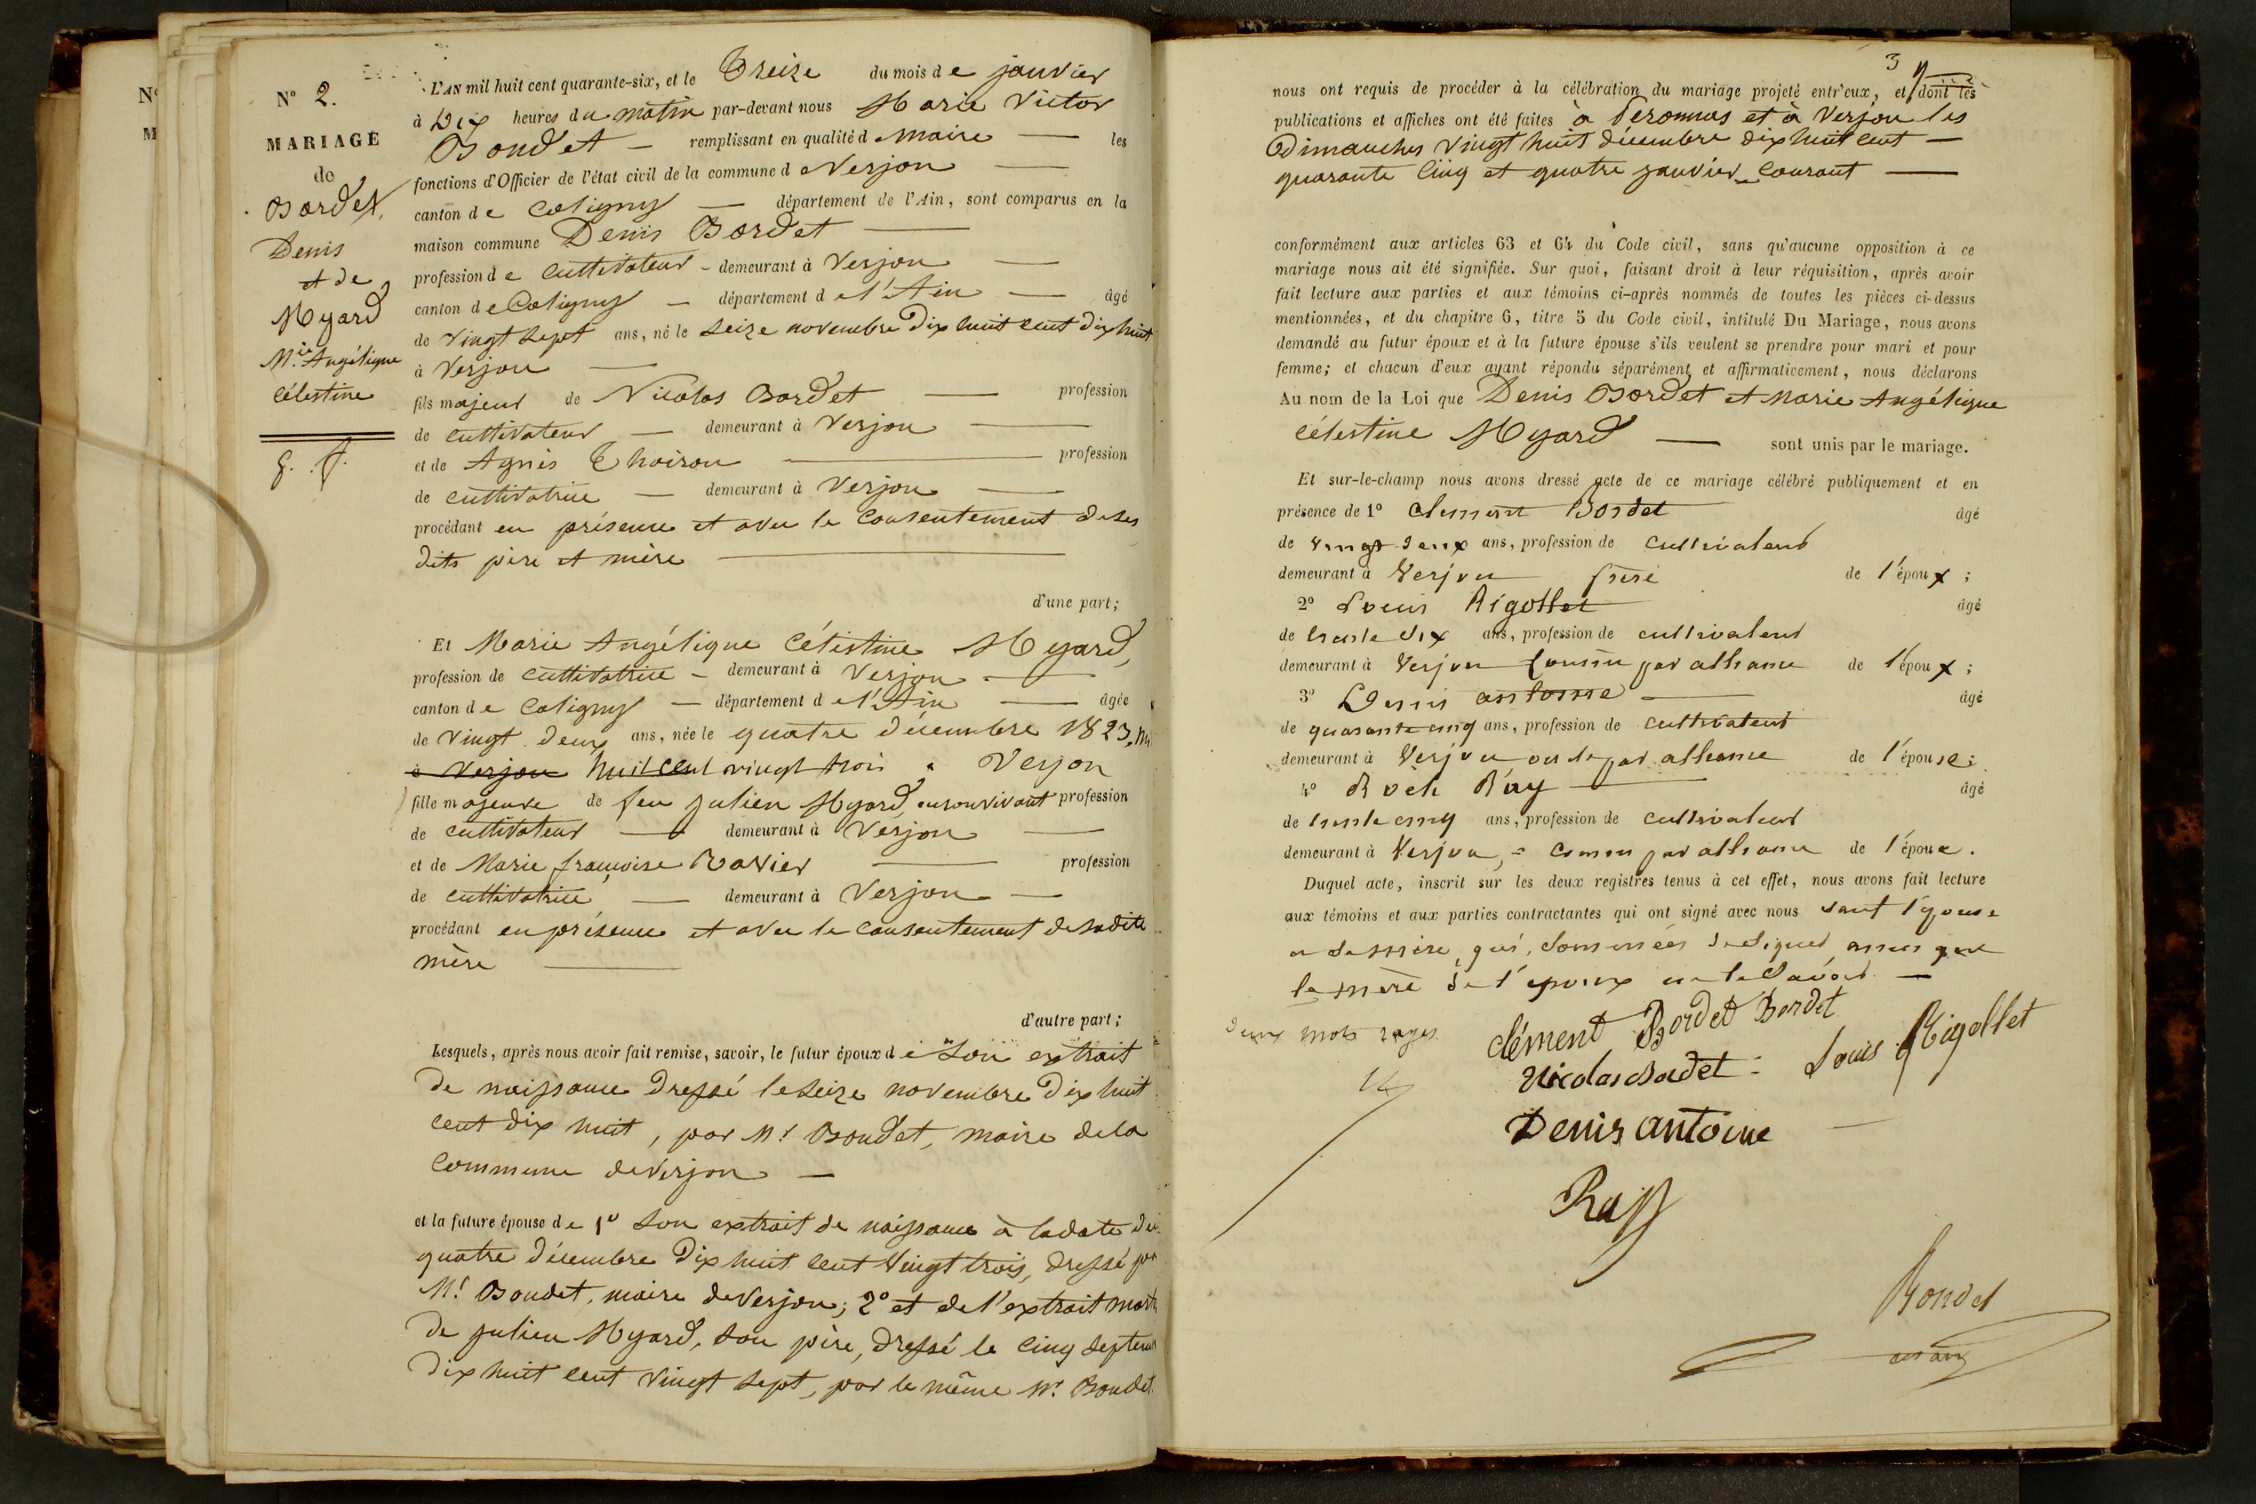 N° 2.
MARIAGE
de
Bordet,
Denis
et de
Myard
Mie Angélique
célestine
L'AN mil huit cent quarante-six, et le Treize du mois de janvier
à Dix heures du matin par-devant nous Marie Victor
Boudet — remplissant en qualité de maire — les
fonctions d'Officier de l'état civil de la commune de Verjon —
canton de Coligny — département de l'Ain, sont comparus en la
maison commune Denis Bordet —
profession de cultivateur - demeurant à Verjon —
canton de Coligny — département de l'Ain — âgé
de vingt sept ans, né le seize novembre dix huit cent dix huit
à Verjon —
fils majeur de Nicolas Bordet — profession
de cultivateur — demeurant à Verjon —
et de Agnès Thoiron — profession
de cultivatrice — demeurant à Verjon —
procédant en présence et avec le consentement de ses
dits père et mère —
d'une part;
Et Marie Angélique Célestine Myard,
profession de cultivatrice - demeurant à Verjon —
canton de Coligny — département de l'Ain — âgée
de vingt deux ans, née le quatre décembre 1823,
à Verjon huit cent vingt trois à Verjon
fille majeure de feu Julien Myard, en son vivant profession
de cultivateur — demeurant à Verjon —
et de Marie françoise Ravier — profession
de cultivatrice — demeurant à Verjon —
procédant en présence et avec le consentement de sadite
mère —
d'autre part;
Lesquels, après nous avoir fait remise, savoir, le futur époux de son extrait
de naissance dressé le seize novembre dix huit
cent dix huit, par Mr Boudet, maire de la
commune de Verjon —
et la future épouse de 1° son extrait de naissance à la date du
quatre décembre dix huit cent vingt trois, dressé par
Mr Boudet, maire de Verjon; 2° et de l'extrait
de julien Myard, son père, dressé le cinq
dix huit cent vingt sept, par le même Mr Boudet
3
nous ont requis de procéder à la célébration du mariage projeté entr'eux, et dont les
publications et affiches ont été faites à Peronnas et à Verjon les
Dimanches vingt huit décembre dix huit cent —
quarante cinq et quatre janvier courant —
conformément aux articles 63 et 64 du Code civil, sans qu'aucune opposition à ce
mariage nous ait été signifiée. Sur quoi, faisant droit à leur réquisition, après avoir
fait lecture aux parties et aux témoins ci-après nommés de toutes les pièces ci-dessus
mentionnées, et du chapitre 6, titre 5 du Code civil, intitulé Du Mariage, nous avons
demandé au futur époux et à la future épouse s'ils veulent se prendre pour mari et pour
femme; et chacun d'eux ayant répondu séparément et affirmativement, nous déclarons
Au nom de la Loi que Denis Bordet et Marie Angélique
célestine Myard — sont unis par le mariage.
Et sur-le-champ nous avons dressé acte de ce mariage célébré publiquement et en
présence de 1° Clement Bordet âgé
de vingt deux ans, profession de cultivateur
demeurant à Verjon frère de l'époux;
2° Louis Rigollet âgé
de trente six ans, profession de cultivateur
demeurant à Verjon cousin par alliance de l'époux;
3° Denis antoine — âgé
de quarante cinq ans, profession de cultivateur
demeurant à Verjon oncle par alliance de l'épouse;
4° Roch Ray — âgé
de trente cinq ans, profession de cultivateur
demeurant à Verjon, cousin par alliance de l'épouse.
Duquel acte, inscrit sur les deux registres tenus à cet effet, nous avons fait lecture
aux témoins et aux parties contractantes qui ont signé avec nous sauf l'épouse
et sa mère, qui, sommées de signer, ainsi que
la mère de l'époux ne le savoir —
deux mots rayés
clément Bordet Bordet
Nicolas Bordet Louis Rigollet
Denis antoine
Ray
Boudet